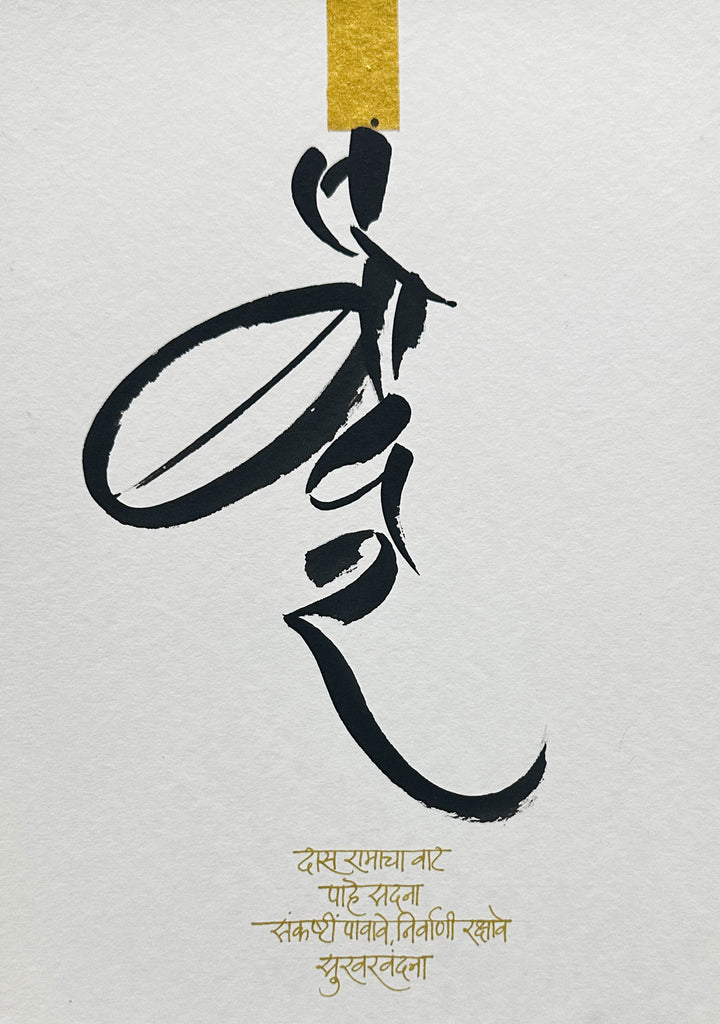 लंबोदर
दास रामाचा वाट
पाहे सदना
संकष्टीं पावावे, निर्वाणी रक्षावे
सुरवरवंदना